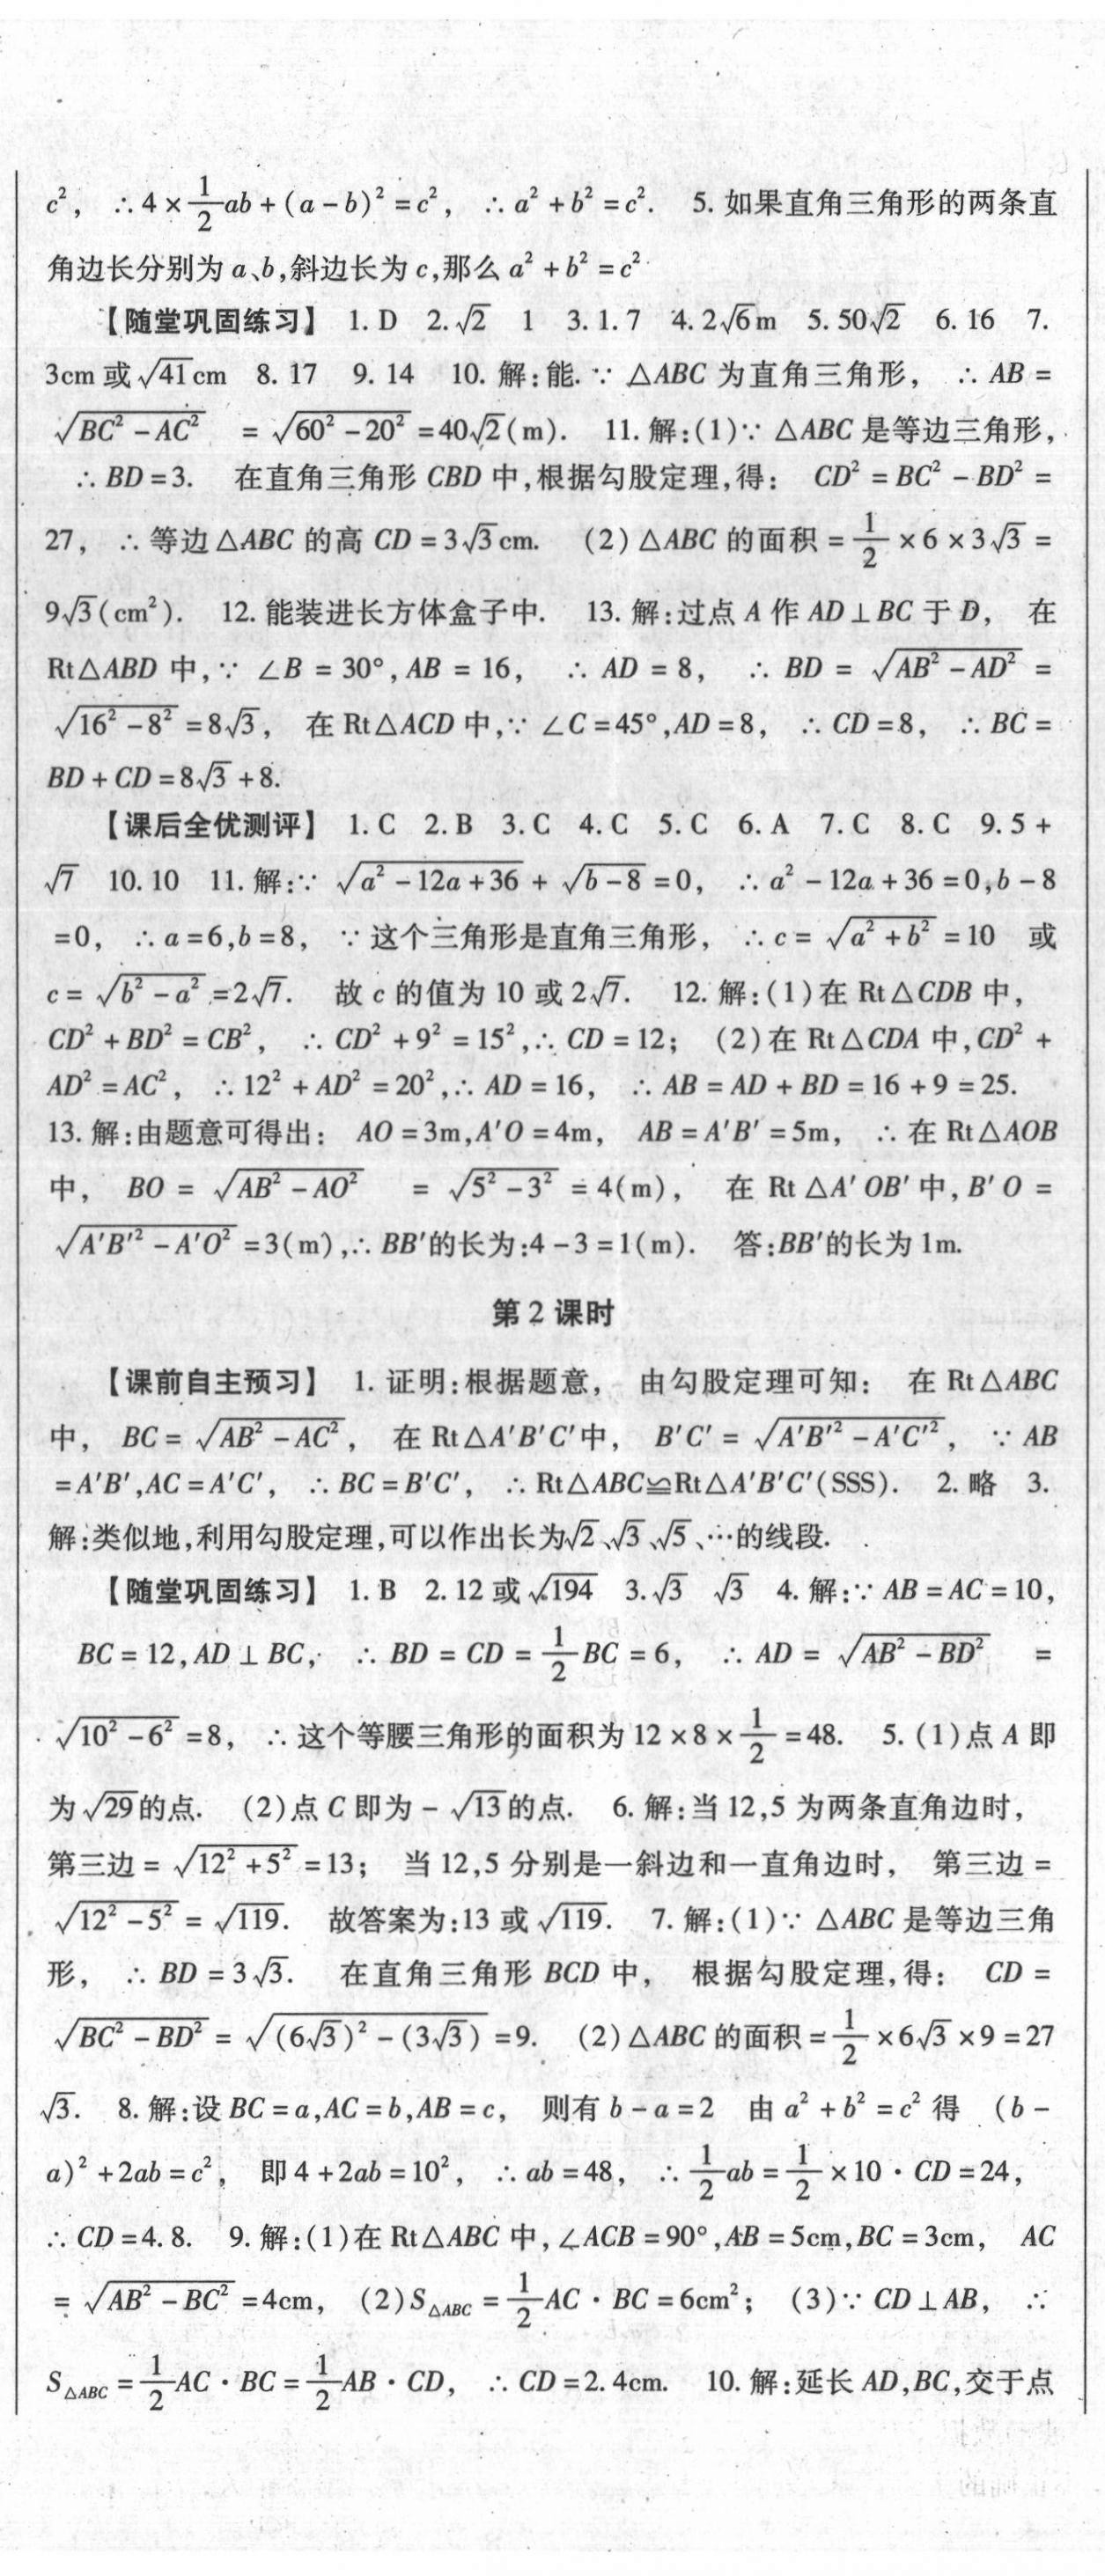 c², ∴4×1/2ab+(a-b)²=c², ∴a²+b²=c². 5.如果直角三角形的两条直
角边长分别为a、b,斜边长为c,那么a²+b²=c²
【随堂巩固练习】 1.D 2.√2 1 3.1.7 4.2√6m 5.50√2 6.16 7.
3cm或√41cm 8.17 9.14 10.解:能.∵△ABC为直角三角形, ∴AB=
√(BC²-AC²) =√(60²-20²)=40√2(m). 11.解:(1)∵△ABC是等边三角形,
∴BD=3. 在直角三角形CBD中,根据勾股定理,得: CD²=BC²-BD²=
27, ∴等边△ABC的高CD=3√3cm. (2)△ABC的面积=1/2×6×3√3=
9√3(cm²). 12.能装进长方体盒子中. 13.解:过点A作AD⊥BC于D, 在
Rt△ABD中,∵∠B=30°,AB=16, ∴AD=8, ∴BD=√(AB²-AD²)=
√(16²-8²)=8√3, 在Rt△ACD中,∵∠C=45°,AD=8, ∴CD=8, ∴BC=
BD+CD=8√3+8.
【课后全优测评】 1.C 2.B 3.C 4.C 5.C 6.A 7.C 8.C 9.5+
√7 10.10 11.解:∵√(a²-12a+36)+√(b-8)=0, ∴a²-12a+36=0,b-8
=0, ∴a=6,b=8, ∵这个三角形是直角三角形, ∴c=√(a²+b²)=10 或
c=√(b²-a²)=2√7. 故c的值为10或2√7. 12.解:(1)在Rt△CDB中,
CD²+BD²=CB², ∴CD²+9²=15²,∴CD=12; (2)在Rt△CDA中,CD²+
AD²=AC², ∴12²+AD²=20²,∴AD=16, ∴AB=AD+BD=16+9=25.
13.解:由题意可得出: AO=3m,A′O=4m, AB=A′B′=5m, ∴在Rt△AOB
中, BO=√(AB²-AO²) =√(5²-3²)=4(m), 在Rt△A′OB′中,B′O=
√(A′B′²-A′O²)=3(m),∴BB′的长为:4-3=1(m). 答:BB′的长为1m.
第2课时
【课前自主预习】 1.证明:根据题意, 由勾股定理可知: 在Rt△ABC
中, BC=√(AB²-AC²), 在Rt△A′B′C′中, B′C′=√(A′B′²-A′C′²), ∵AB
=A′B′,AC=A′C′, ∴BC=B′C′, ∴Rt△ABC≌Rt△A′B′C′(SSS). 2.略 3.
解:类似地,利用勾股定理,可以作出长为√2、√3、√5、…的线段.
【随堂巩固练习】 1.B 2.12或√194 3.√3 √3 4.解:∵AB=AC=10,
BC=12,AD⊥BC, ∴BD=CD=1/2BC=6, ∴AD=√(AB²-BD²) =
√(10²-6²)=8, ∴这个等腰三角形的面积为12×8×1/2=48. 5.(1)点A即
为√29的点. (2)点C即为-√13的点. 6.解:当12,5为两条直角边时,
第三边=√(12²+5²)=13; 当12,5分别是一斜边和一直角边时, 第三边=
√(12²-5²)=√119. 故答案为:13或√119. 7.解:(1)∵△ABC是等边三角
形, ∴BD=3√3. 在直角三角形BCD中, 根据勾股定理,得: CD=
√(BC²-BD²)=√((6√3)²-(3√3))=9. (2)△ABC的面积=1/2×6√3×9=27
√3. 8.解:设BC=a,AC=b,AB=c, 则有b-a=2 由a²+b²=c²得 (b-
a)²+2ab=c², 即4+2ab=10², ∴ab=48, ∴1/2ab=1/2×10·CD=24,
∴CD=4.8. 9.解:(1)在Rt△ABC中,∠ACB=90°,AB=5cm,BC=3cm, AC
=√(AB²-BC²)=4cm, (2)S△ABC=1/2AC·BC=6cm²; (3)∵CD⊥AB, ∴
S△ABC=1/2AC·BC=1/2AB·CD, ∴CD=2.4cm. 10.解:延长AD,BC,交于点